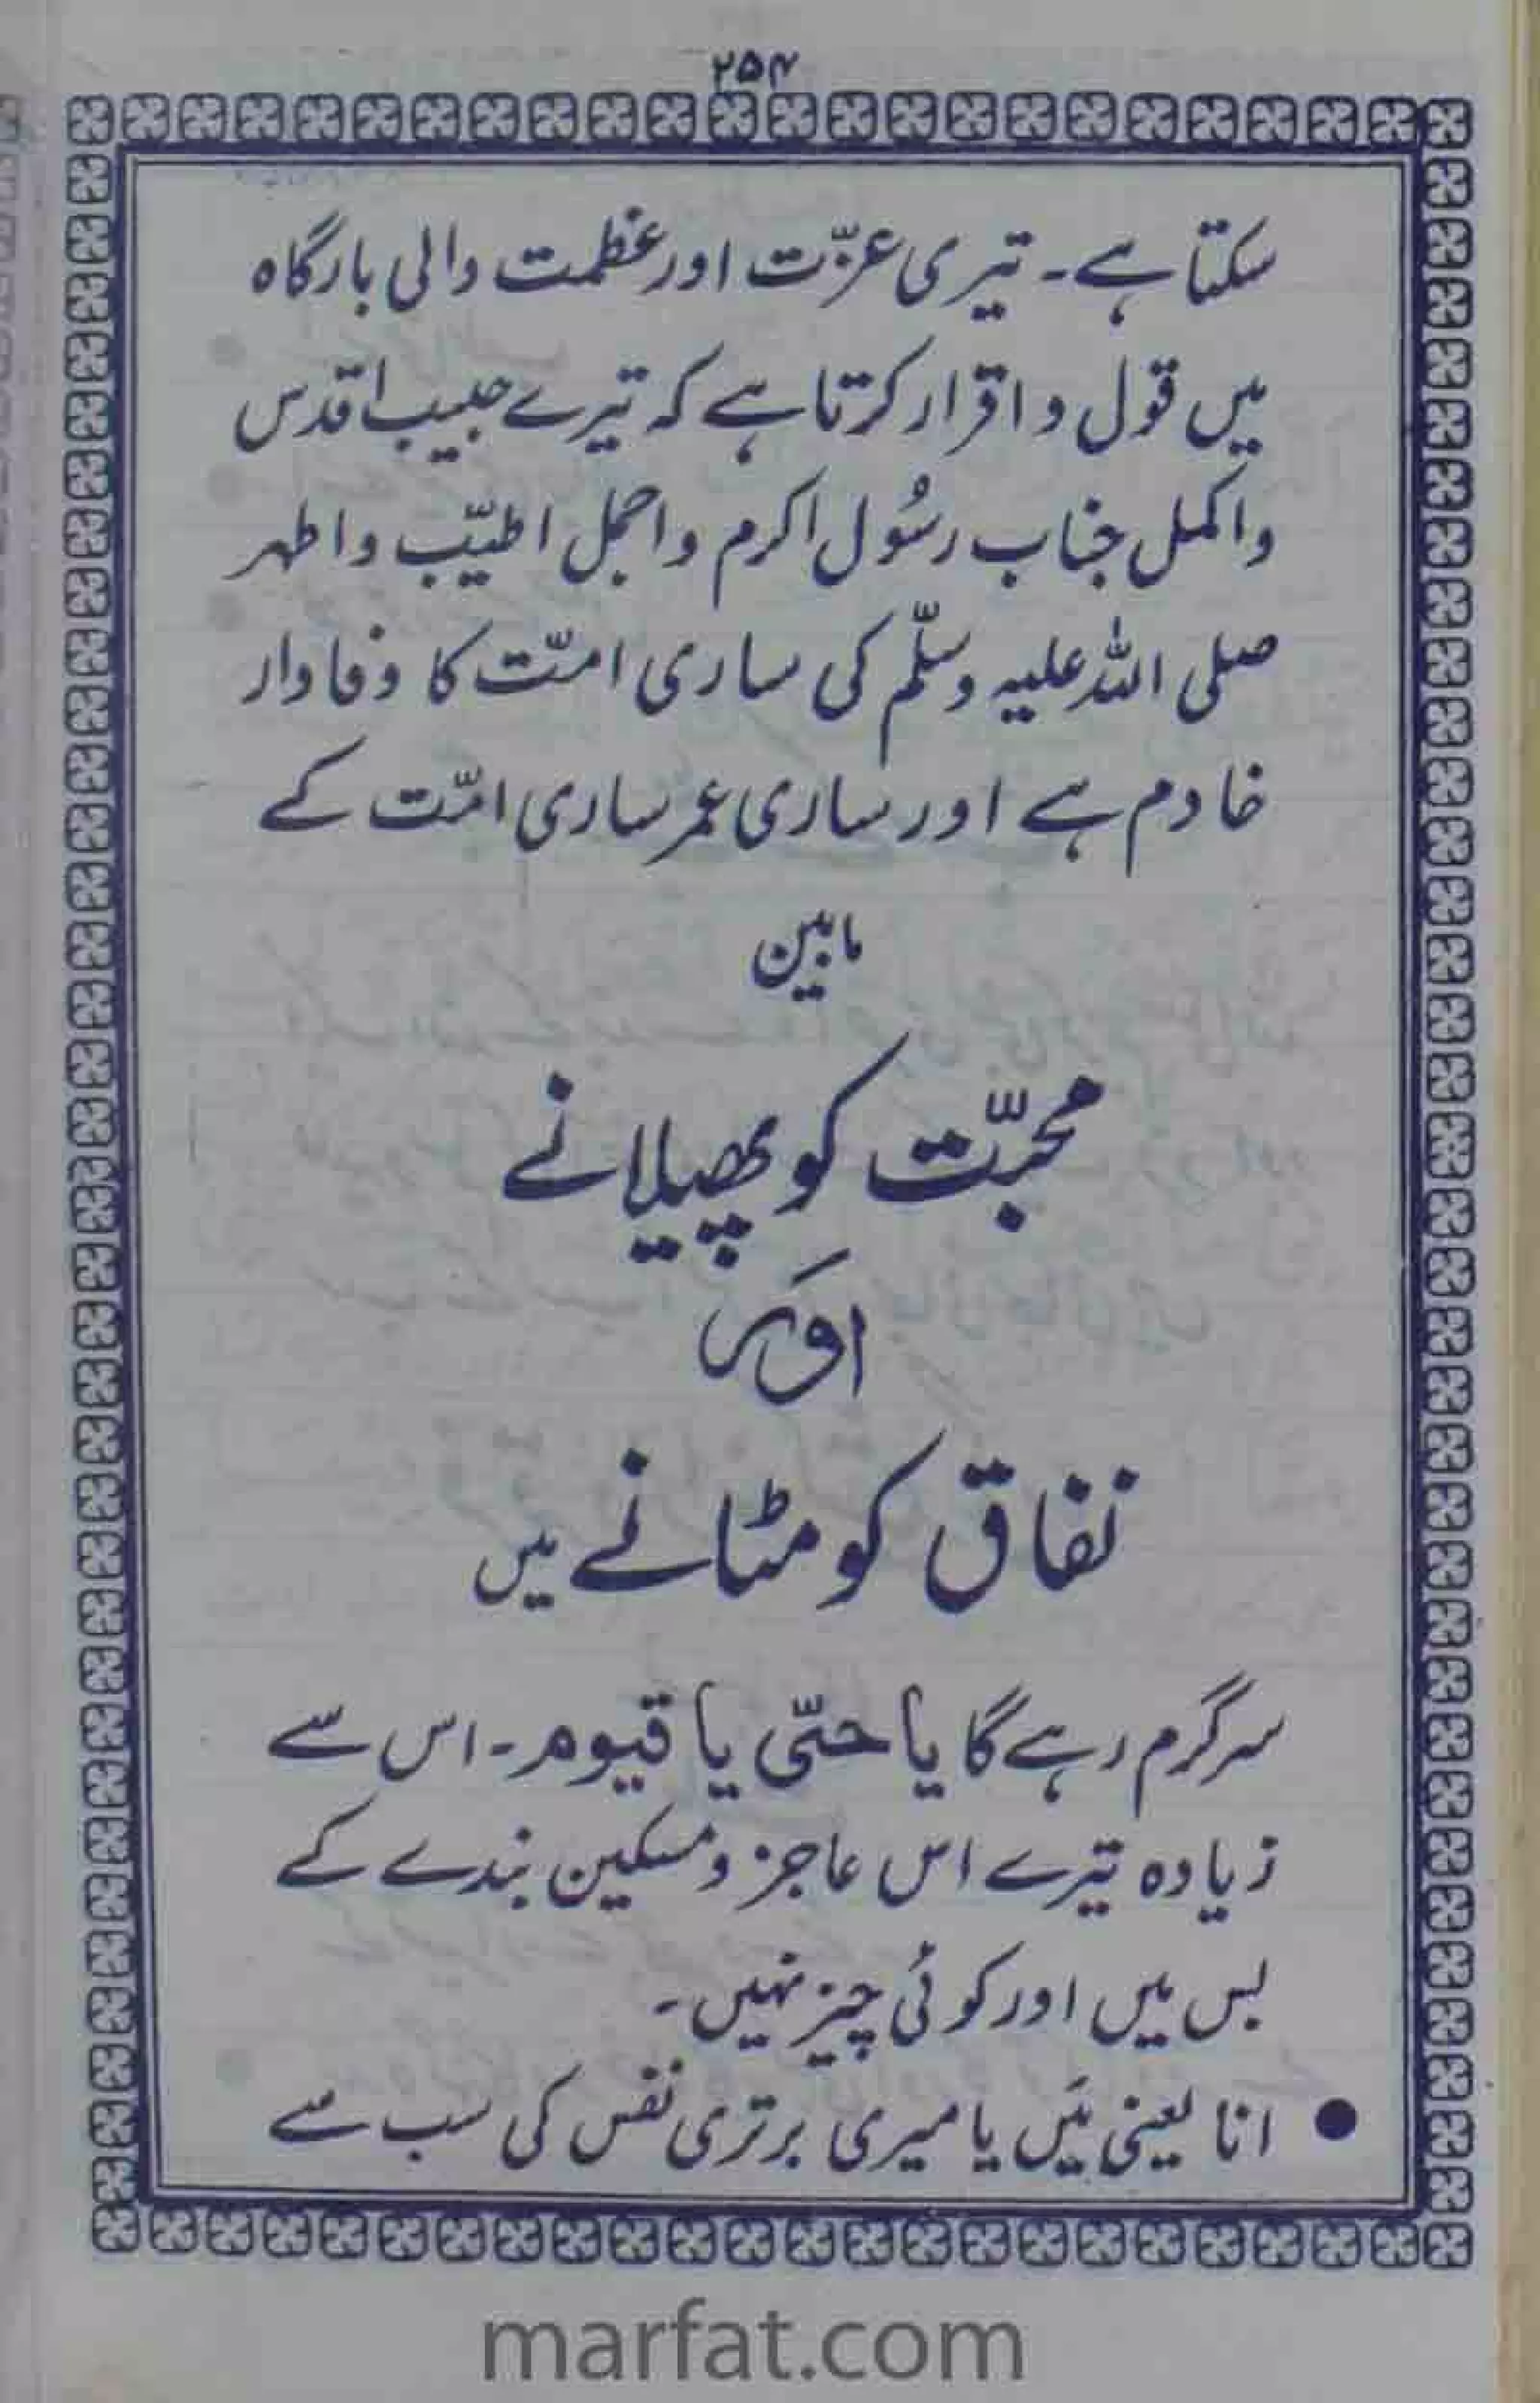 ۲۵۴
سکتا ہے۔ تیری عزّت اور عظمت والی بارگاہ
میں قول و اقرار کرتا ہے کہ تیرے حبیب اقدس
و اکمل جناب رسُول اکرم و اجمل اطیّب و اطہر
صلی اللہ علیہ وسلّم کی ساری امّت کا وفادار
خادم ہے اور ساری عمر ساری امّت کے
مابین
محبّت کو پھیلانے
اوَر
نفاق کو مٹانے میں
سرگرم رہے گا یا حیّ یا قیوم۔ اس سے
زیادہ تیرے اس عاجز و مسکین بندے کے
بس میں اور کوئی چیز نہیں۔
● انا یعنی مَیں یا میری برتری نفس کی سب سے
marfat.com